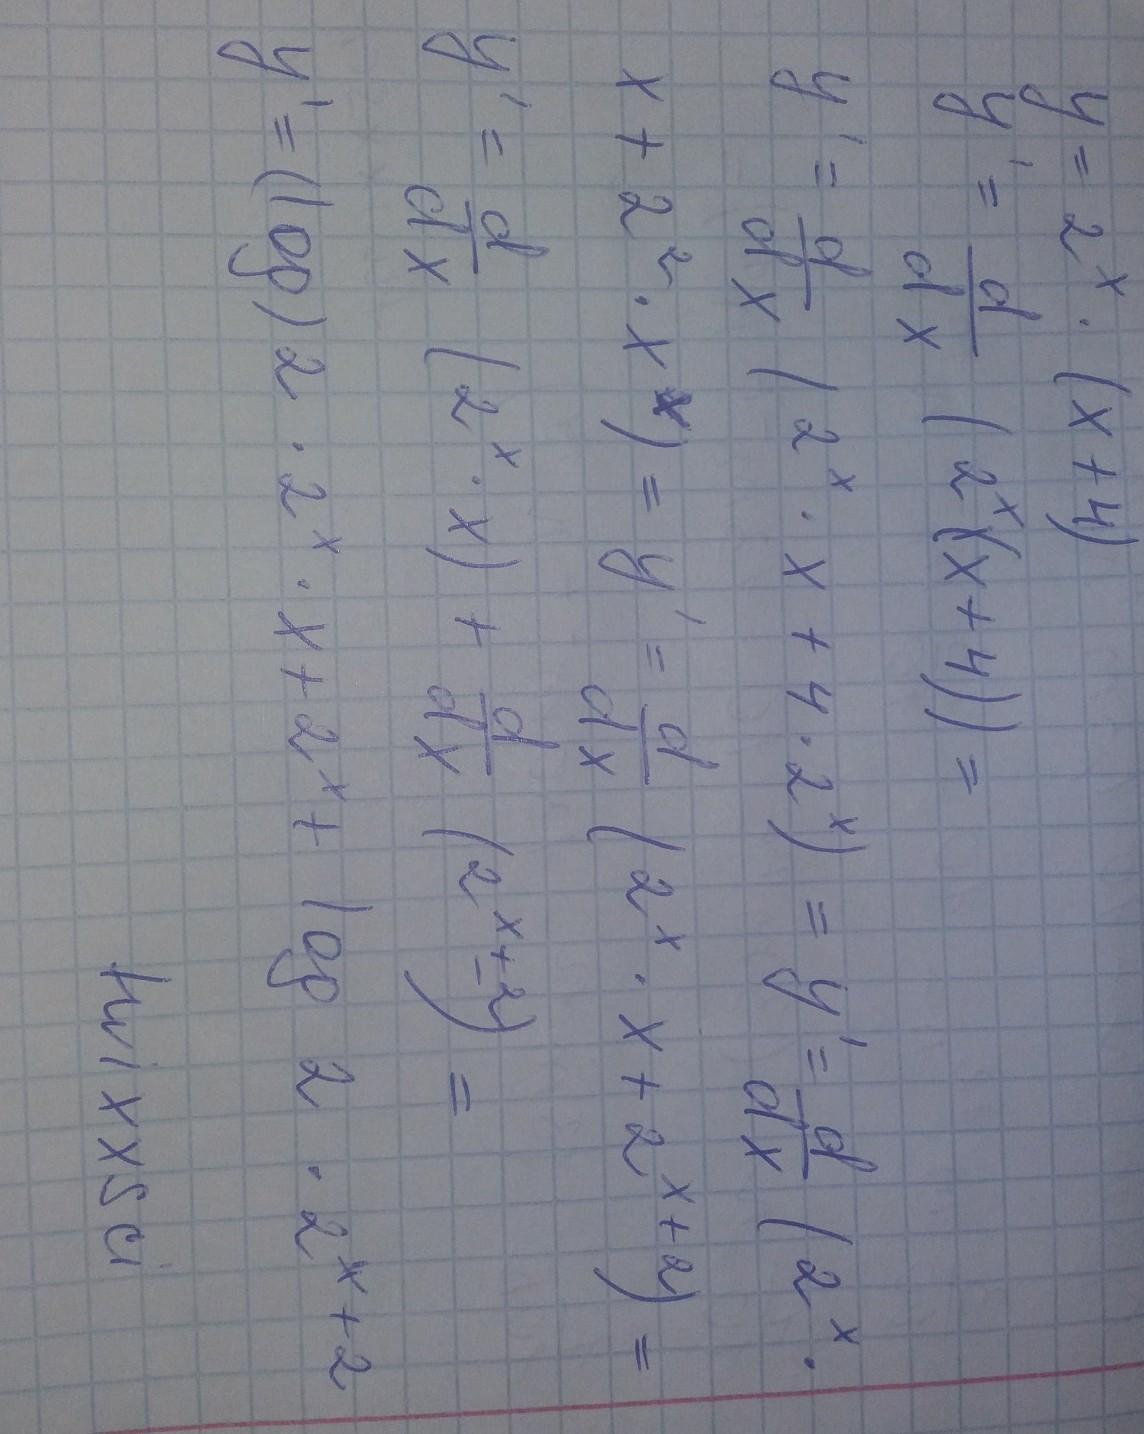 y = 2^x · (x + 4)
y' = d/dx (2^x (x + 4)) =
y' = d/dx (2^x · x + 4 · 2^x) = y' = d/dx (2^x ·
x + 2^2 · x^x) = y' = d/dx (2^x · x + 2^(x+2)) =
y' = d/dx (2^x · x) + d/dx (2^(x+2)) =
y' = (log) 2 · 2^x · x + 2^x + log 2 · 2^(x+2)
hwixxsci